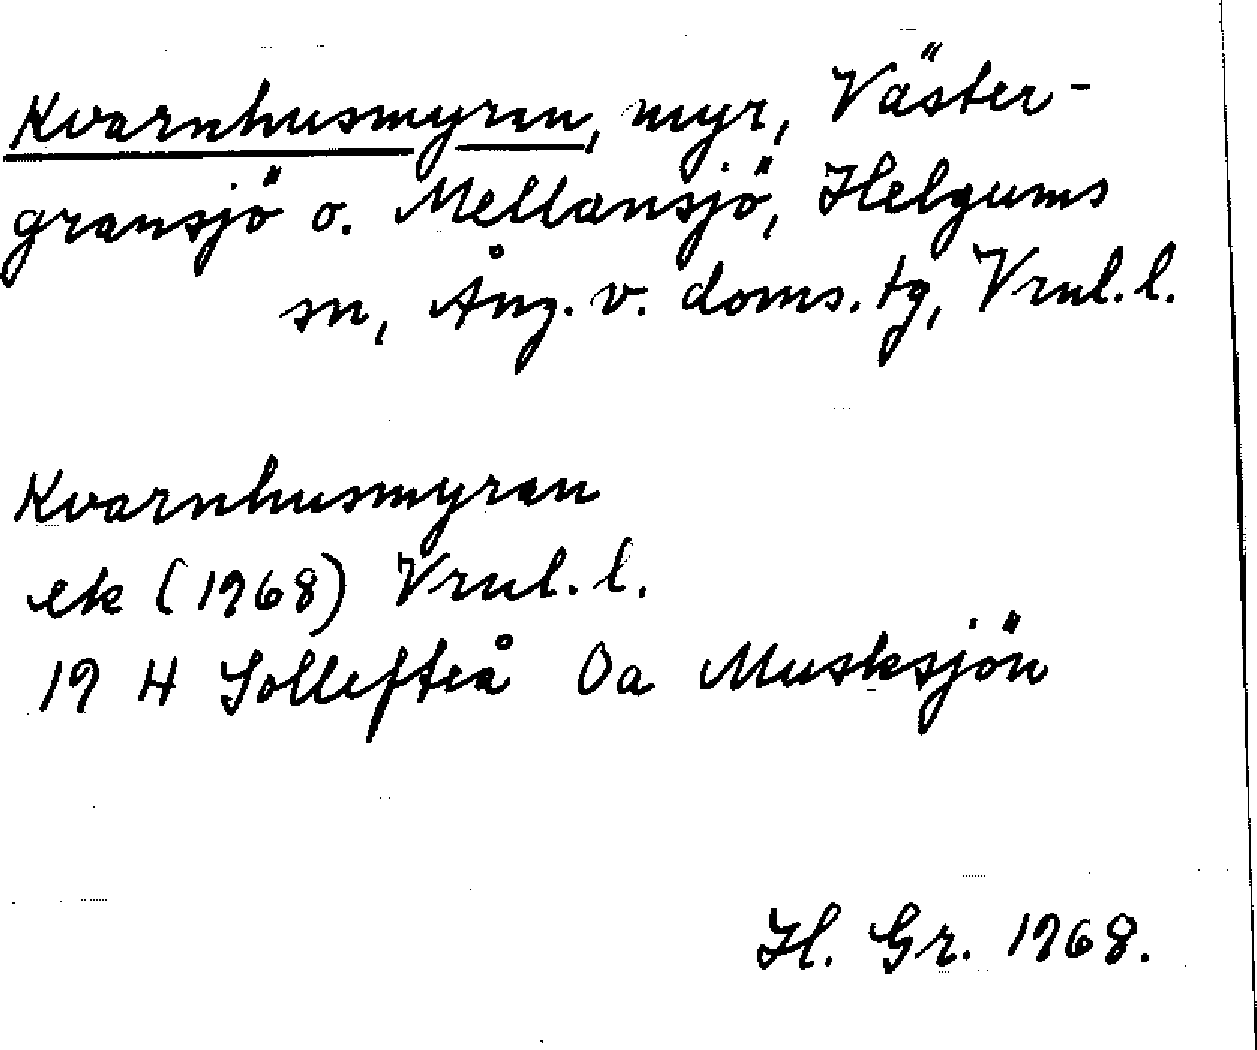 Kvarnhusmyran, myr, Väster-
gransjö o. Mellansjö, Helgums
sn, Ång. v. doms. tg, Vrnl. l.
Kvarnhusmyran
ek (1968) Vrnl. l.
19 H Sollefteå 0a Musksjön
H. Gr. 1968.